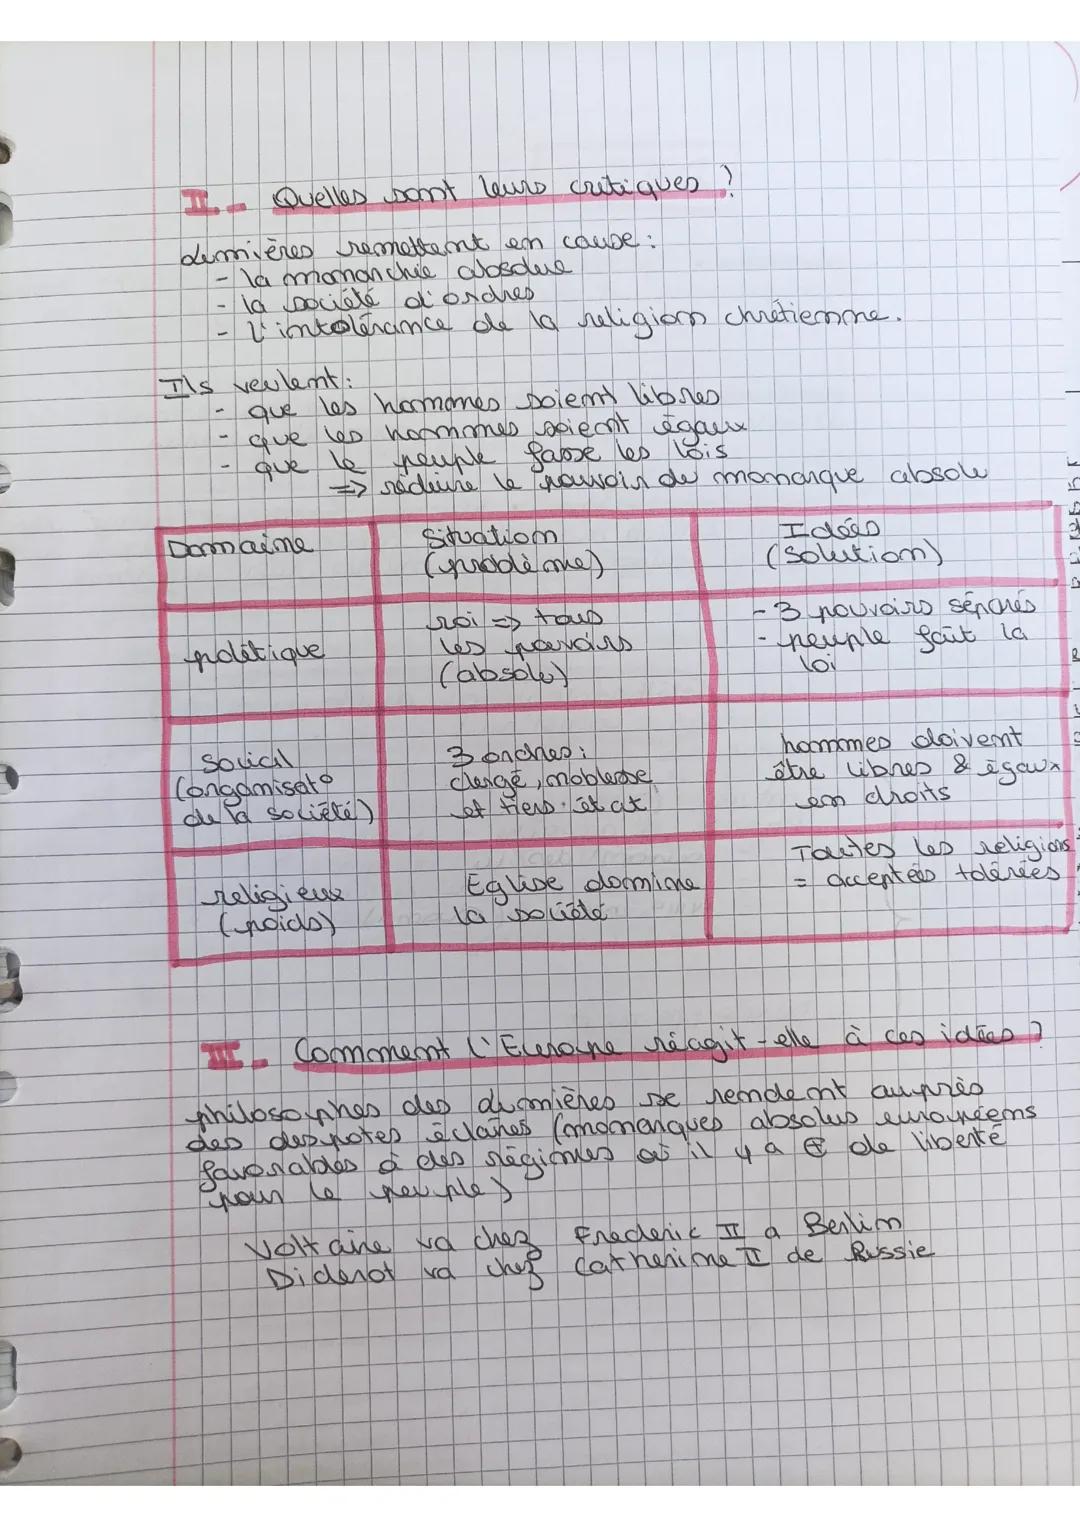 II. - Quelles sont leurs critiques ?
Lumières remettent en cause :
- la monarchie absolue
- la société d'ordres
- l'intolérance de la religion chrétienne.
Ils veulent :
- que les hommes soient libres
- que les hommes soient égaux
- que le peuple fasse les lois
=> réduire le pouvoir du monarque absolu
Domaine
Situation
(problème)
Idées
(solution)
politique
roi => tous
les pouvoirs
(absolu)
- 3 pouvoirs séparés
- peuple fait la
loi
social
(organisat°
de la société)
3 ordres :
clergé, noblesse
et tiers-état
hommes doivent
être libres & égaux
en droits
religieux
(poids)
Eglise domine
la société
Toutes les religions
= acceptées tolérées
III - Comment l'Europe réagit-elle à ces idées ?
philosophes des Lumières se rendent auprès
des despotes éclairés (monarques absolus européens
favorables à des régimes où il y a ⊕ de liberté
pour le peuple)
Voltaire va chez Frederic II a Berlin
Diderot va chez Catherine II de Russie